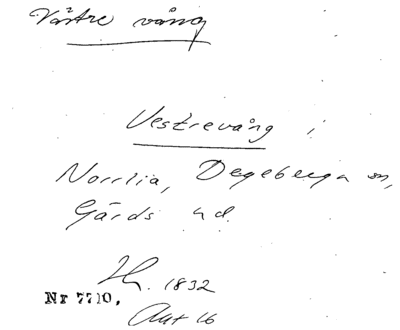 Västre vång
Vestrevång i
Norrlia, Degeberga sn,
Gärds hd.
1832
Nr 7710,
Akt 16